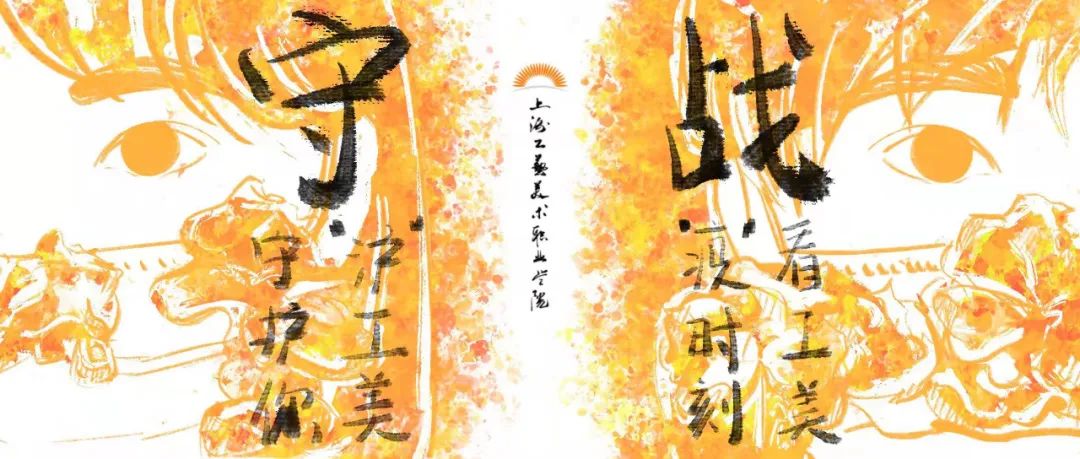 战
看工美
疫时刻
上海工藝美术职业学院
守
沪工美
守护你